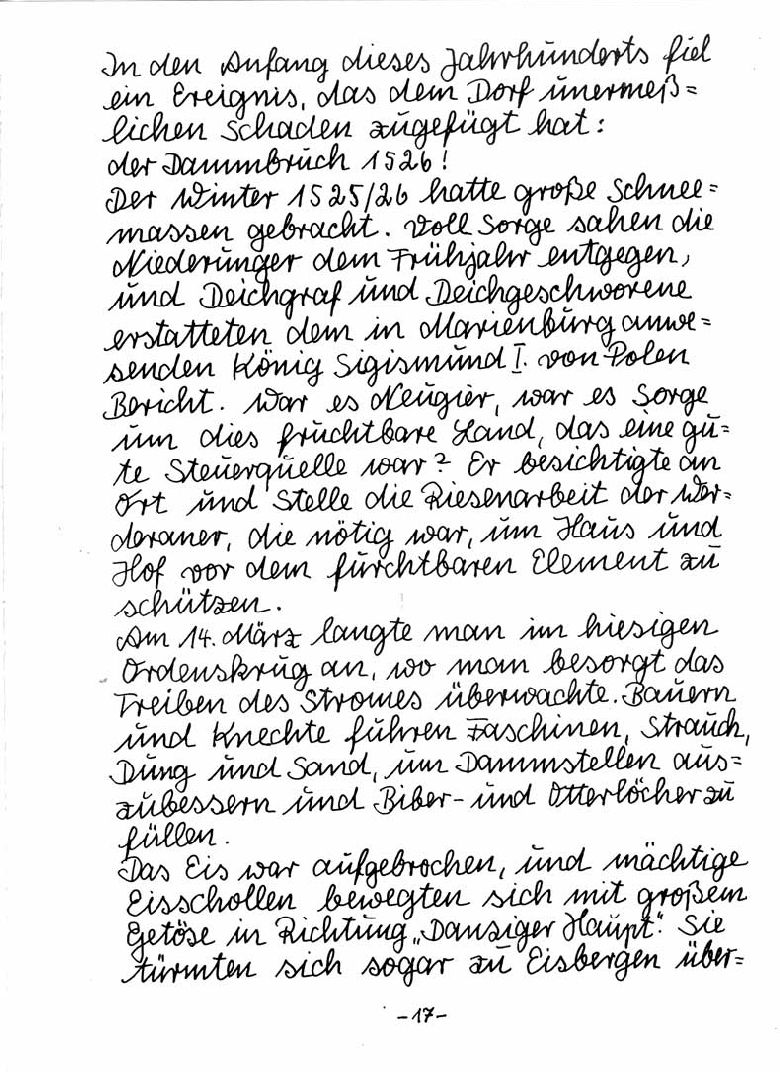 In den Anfang dieses Jahrhunderts fiel
ein Ereignis, das dem Dorf unermeß=
lichen Schaden zugefügt hat:
der Dammbruch 1526!
Der Winter 1525/26 hatte große Schnee=
massen gebracht. Voll Sorge sahen die
Niederunger dem Frühjahr entgegen,
und Deichgraf und Deichgeschworene
erstatteten dem in Marienburg anwe=
senden König Sigismund I. von Polen
Bericht. War es Neugier, war es Sorge
um dies fruchtbare Land, das eine gu=
te Steuerquelle war? Er besichtigte an
Ort und Stelle die Riesenarbeit der Wer=
deraner, die nötig war, um Haus und
Hof vor dem furchtbaren Element zu
schützen.
Am 14. März langte man im hiesigen
Ordenskrug an, wo man besorgt das
Treiben des Stromes überwachte. Bauern
und Knechte fuhren Faschinen, Strauch,
Dung und Sand, um Dammstellen aus=
zubessern und Biber- und Otterlöcher zu
füllen.
Das Eis war aufgebrochen, und mächtige
Eisschollen bewegten sich mit großem
Getöse in Richtung „Danziger Haupt". Sie
türmten sich sogar zu Eisbergen über=
-17-